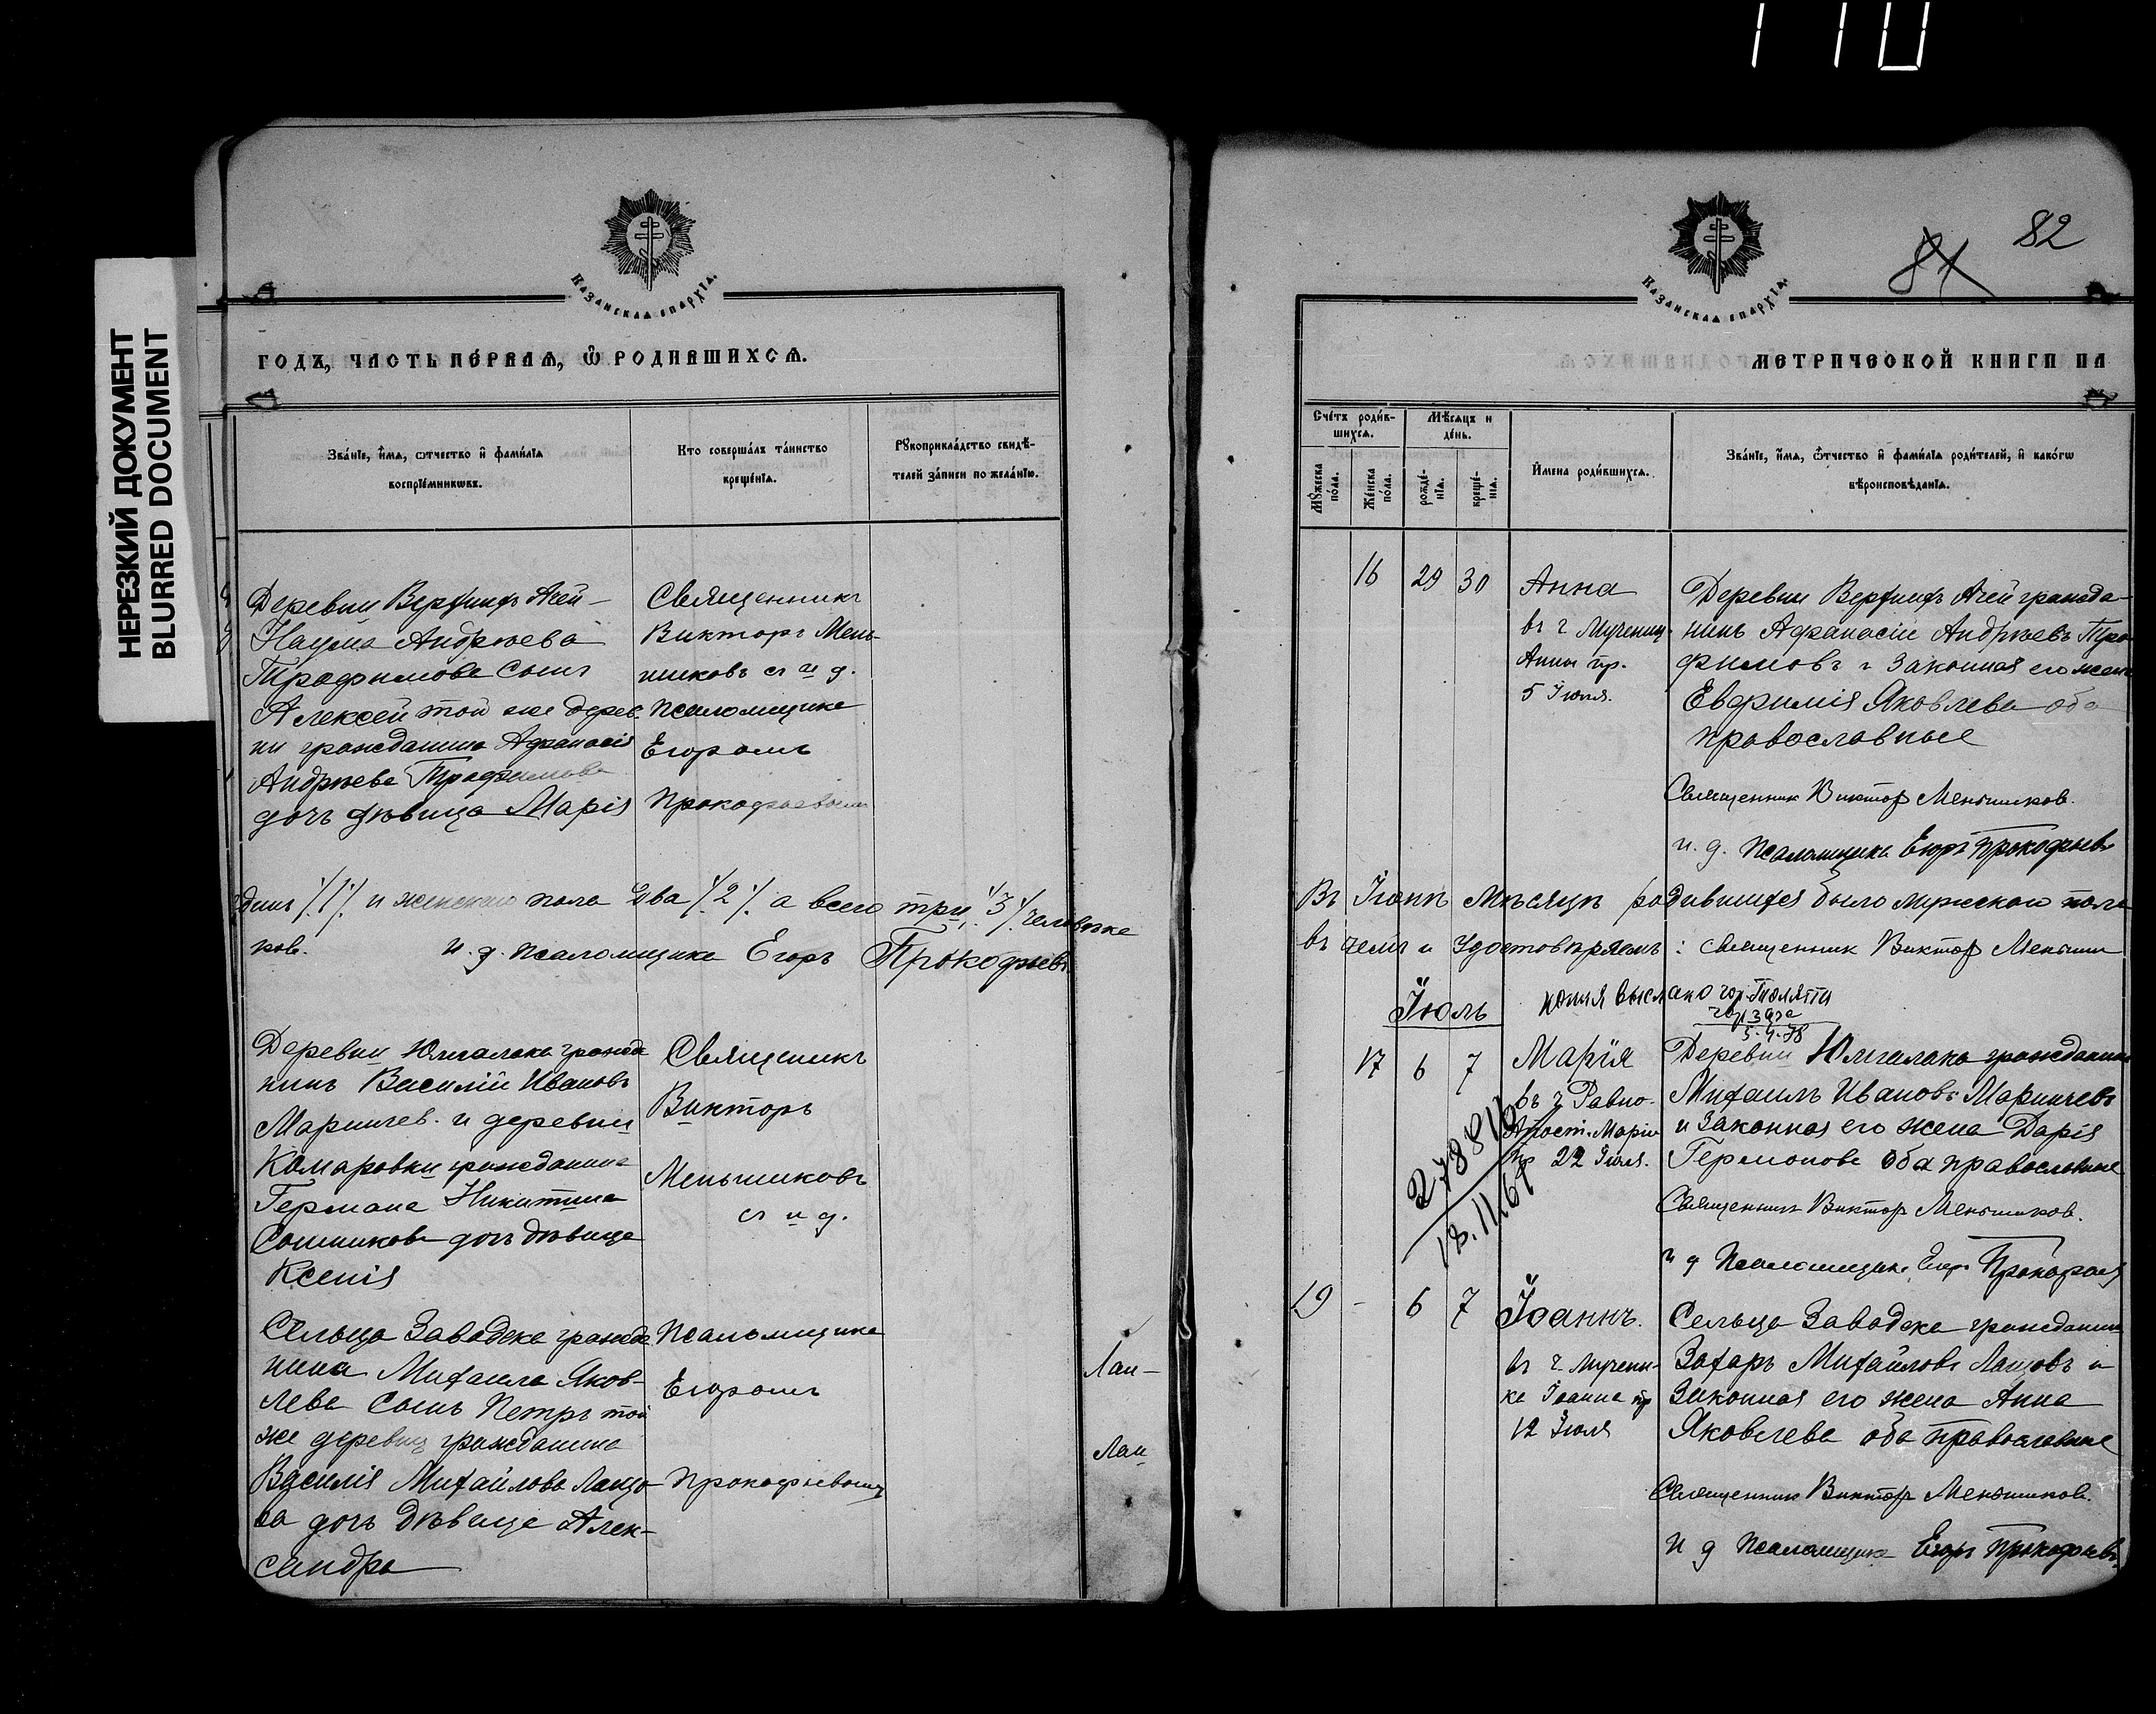 110
НЕРЕЗКИЙ ДОКУМЕНТ
BLURRED DOCUMENT
Казанская епархїа.
годъ, часть первая, ѡ родившихся.
Званїе, имя, ѡтчество и фамилїя
воспрїемниковъ.
Кто совершалъ таинство
крещенїя.
Рꙋкоприкладство свидѣ-
телей записи по желанїю.
Деревни Верхнихъ Ачей
Наума Андреева
Трофимова сынъ
Алексей той же дерев
ни гражданина Афанасія
Андреева Трофимова
дочь дѣвица Марія
Священникъ
Викторъ Мень-
шиковъ съ и д.
псаломщика
Егоромъ
Прокофьевымъ
динъ /1/ и женскаго пола два /2/ а всего три /3/ человѣка
ков. и. д. псаломщика Егоръ Прокофьевъ
Деревни Юлгалака гражда
нинъ Василій Ивановъ
и деревни
Комаровки гражданина
Германа Никитина
дочь дѣвица
Ксенія
Священникъ
Викторъ
Меньшиковъ
съ и д.
Сельца Заводска гражда
нина Михаила Яков-
лева сынъ Петръ той
же деревни гражданина
Василія Михайлова Лацо-
ва дочь дѣвица Алек-
сандра
псаломщика
Егоромъ
Прокофьевымъ
Казанская епархїа.
81 82
метрической книги на
Счетъ родив-
шихся.
Мꙋжеска
пола.
Женска
пола.
Мѣсяцъ и
день.
рожде-
нїя.
креще-
нїя.
Имена родившихся.
Званїе, имя, ѡтчество и фамилїя родителей, и какогѡ
вѣроисповѣданїя.
16 29 30
Анна
въ ч мучениц
Анны пр.
5 Іюля.
Деревни Верхнихъ Ачей гражда-
нинъ Афанасій Андреевъ Тро
фимовъ и законная его жена
Евфимія Яковлева оба
православные
Священник Виктор Меньшиков.
и. д. псаломщика Егоръ Прокофьевъ
Въ Іюнѣ мѣсяцѣ родившихся было мужского пола
въ чемъ и удостовѣряемъ: священник Виктор Меньши
Іюль
копия выслано гор. Тюляти
5.4.78
17 6 7
Марія
въ ч Равно-
Апост. Маріи
пр 22 Іюля.
278816
18.11.67
Деревни Юлгалака гражданинъ
Михаилъ Ивановъ
и законная его жена Дарія
Германова оба православные
Священник Виктор Меньшиков.
и д псаломщика Егоръ Прокофьев
19 - 6 7
Іоаннъ.
въ ч. мучени-
ка Іоанна пр
12 Іюля
Сельца Заводска гражданинъ
Захаръ Михайловъ Лацовъ и
законная его жена Анна
Яковлева оба православные
Священник Виктор Меньшиков.
и д псаломщика Егоръ Прокофьевъ.